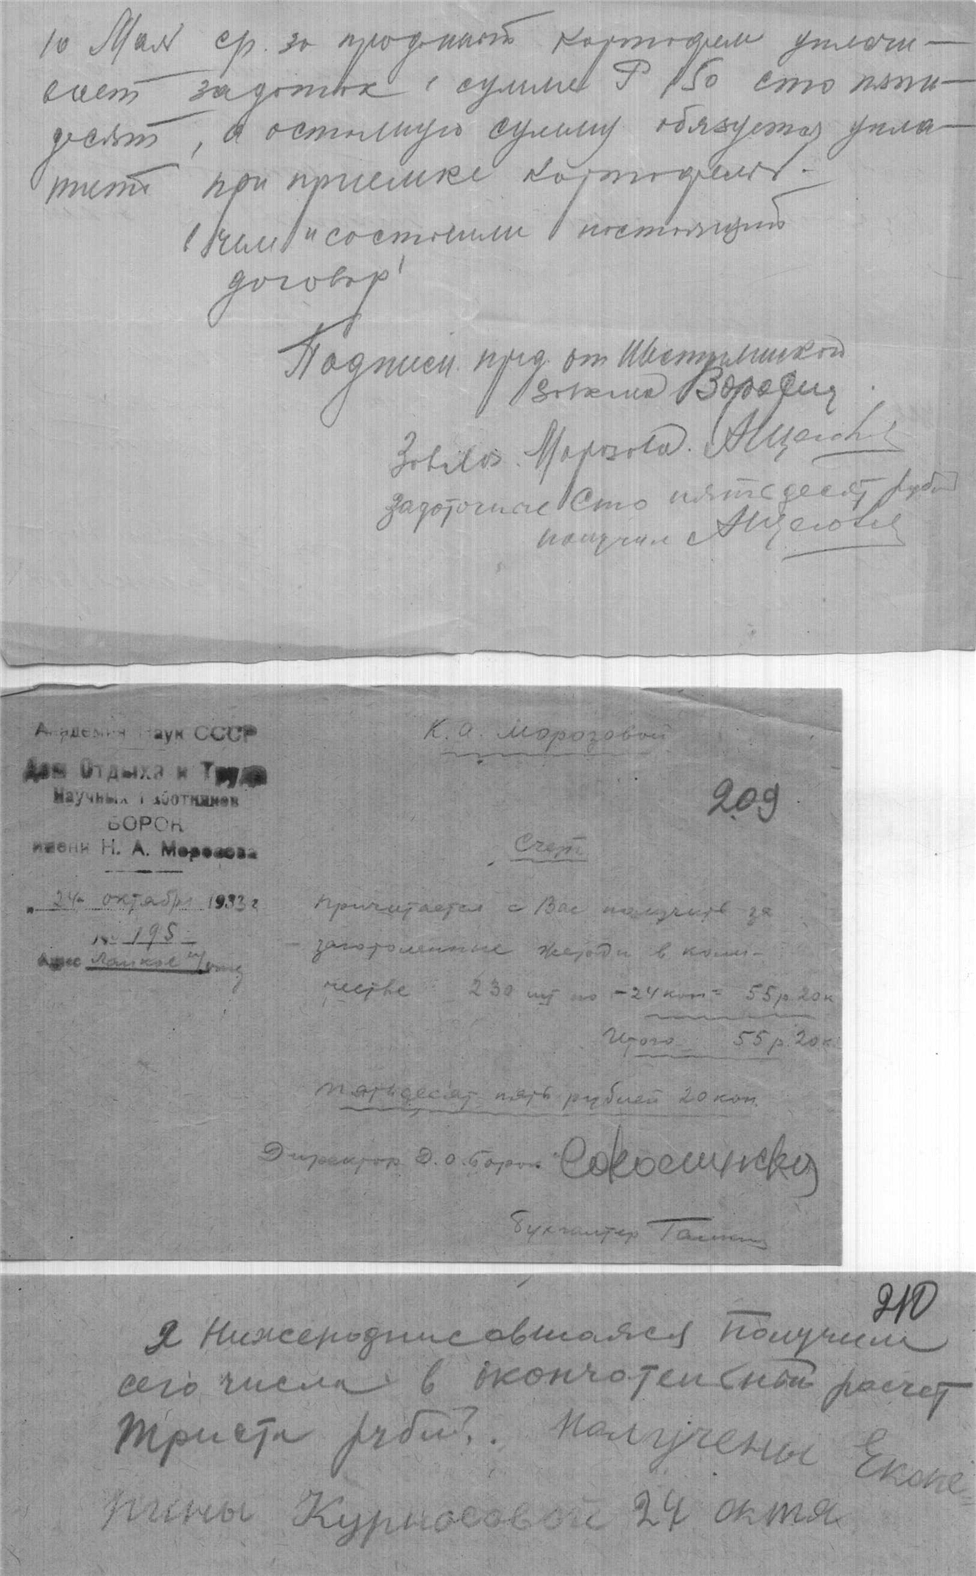 10 Мая с.г. за проданный картофель уплачи-
вает задаток в сумме Р 150 сто пять-
десят, а остальную сумму обязуется упла-
тить при приемке картофеля.
В чем и составили настоящий
договор
Подписи пред. от
Морозова
задаточные Сто пятьдесят рублей
получил
Академия Наук СССР
Дом Отдыха и Труда
Научных Работников
БОРОК
имени Н. А. Морозова
"24" октября 1933 г
№ 195
К. А. Морозовой
209
Счет
Причитается с Вас получить за
заготовленные жерди в коли-
честве 230 шт по -24 коп = 55 р 20 к
Итого 55 р 20 к
Пятьдесят пять рублей 20 коп.
Директор Д.О. Борок
Бухгалтер
210
Я Нижеподписавшаяся Получила
сего числа в окончательный расчет
триста рубл. Получены Екате-
рины Курносовой 24 октя